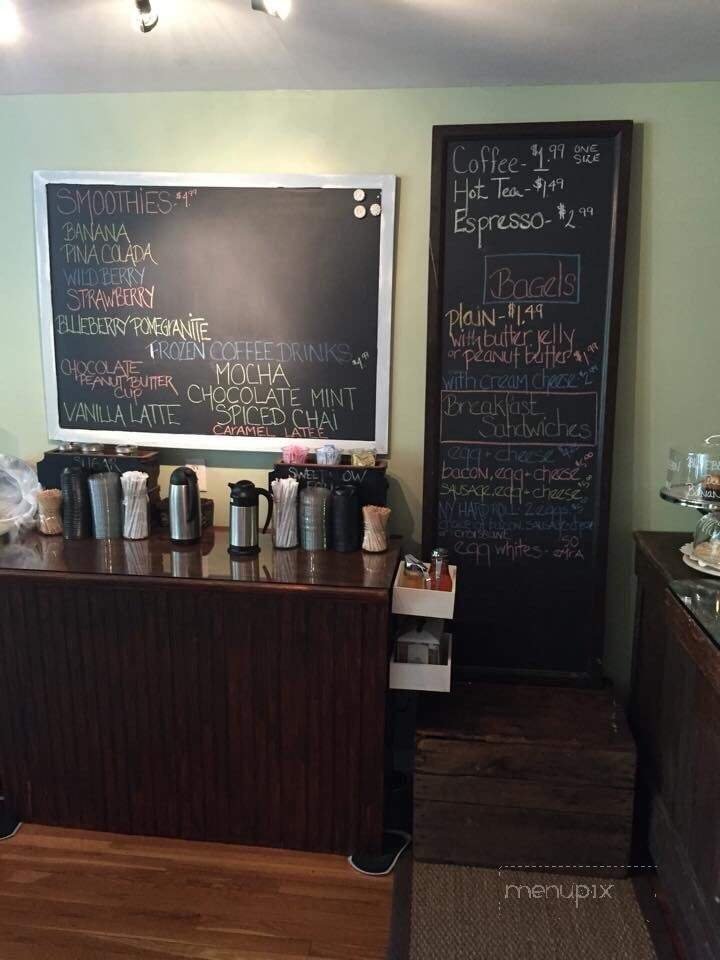 SMOOTHIES- $4.99
BANANA
PINA COLADA
WILD BERRY
STRAWBERRY
BLUEBERRY POMEGRANITE
FROZEN COFFEE DRINKS $4.99
CHOCOLATE
PEANUT BUTTER
CUP
VANILLA LATTE
MOCHA
CHOCOLATE MINT
SPICED CHAI
CARAMEL LATEE
Coffee- $1.99 ONE SIZE
Hot Tea- $1.49
Espresso- $2.99
Bagels
plain- $1.49
with butter, jelly
or peanut butter $1.99
with cream cheese
Breakfast
Sandwiches
egg + cheese
bacon, egg + cheese
sausage, egg + cheese
NY HARD ROLL 2 eggs
choice of bacon, sausage
or croissant
egg whites - .50 extra
SUGAR
SWEET
LOW
menupix